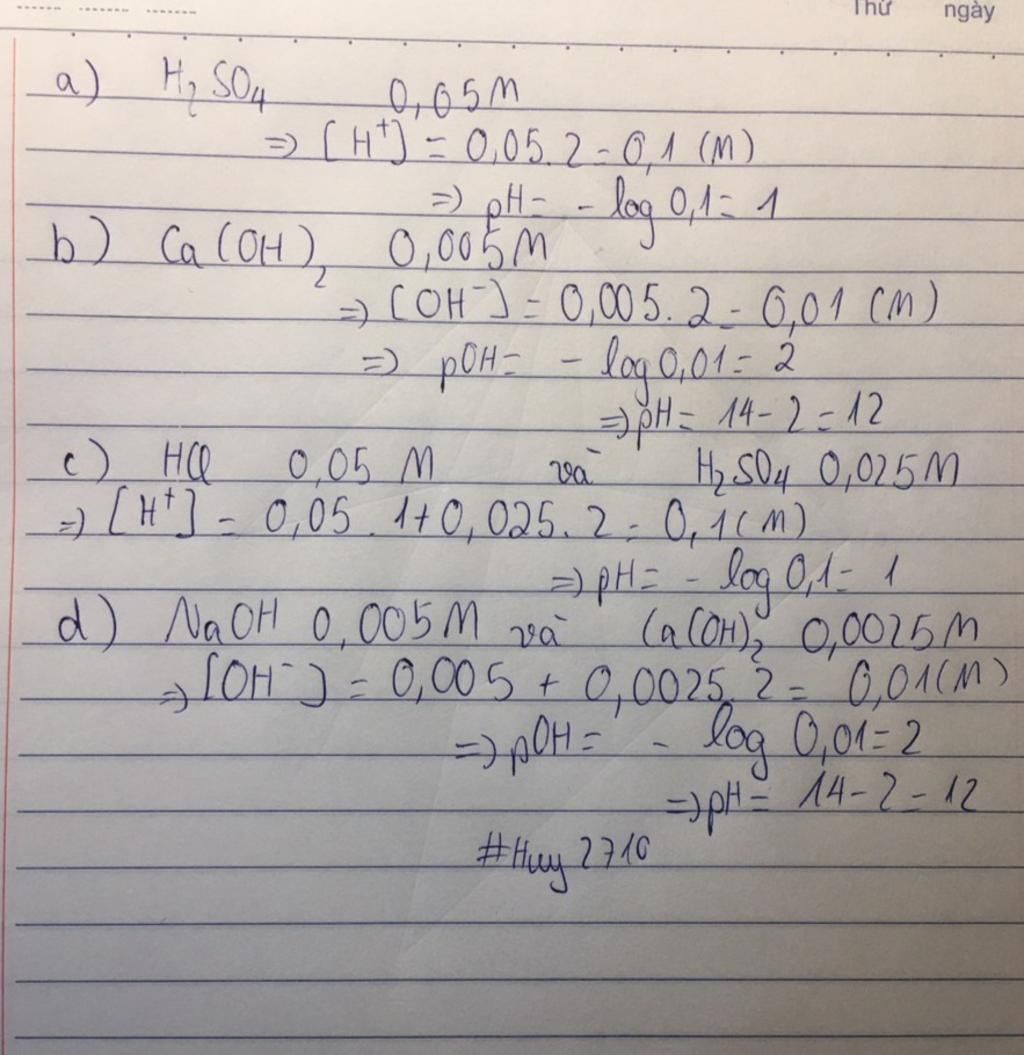 Thứ ngày
a) H₂SO₄ 0,05M
=> [H⁺] = 0,05.2 = 0,1 (M)
=> pH = - log 0,1 = 1
b) Ca(OH)₂ 0,005M
=> [OH⁻] = 0,005.2 = 0,01 (M)
=> pOH = - log 0,01 = 2
=> pH = 14 - 2 = 12
c) HCl 0,05 M và H₂SO₄ 0,025M
=> [H⁺] = 0,05.1 + 0,025.2 = 0,1 (M)
=> pH = - log 0,1 = 1
d) NaOH 0,005M và Ca(OH)₂ 0,0025M
=> [OH⁻] = 0,005 + 0,0025.2 = 0,01 (M)
=> pOH = - log 0,01 = 2
=> pH = 14 - 2 = 12
#Huy2710